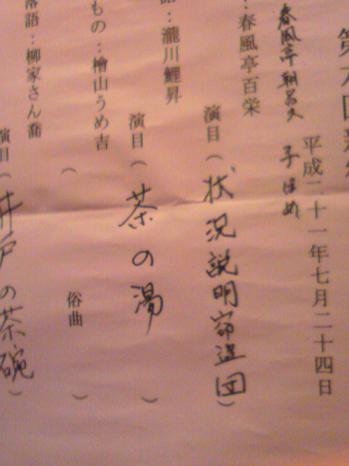 平成二十一年七月二十四日
春風亭朝呂久 子ほめ
：春風亭百栄
演目（状況説明窃盗団）
：瀧川鯉昇
演目（茶の湯）
もの：檜山うめ吉
（俗曲）
落語：柳家さん喬
演目（井戸の茶碗）